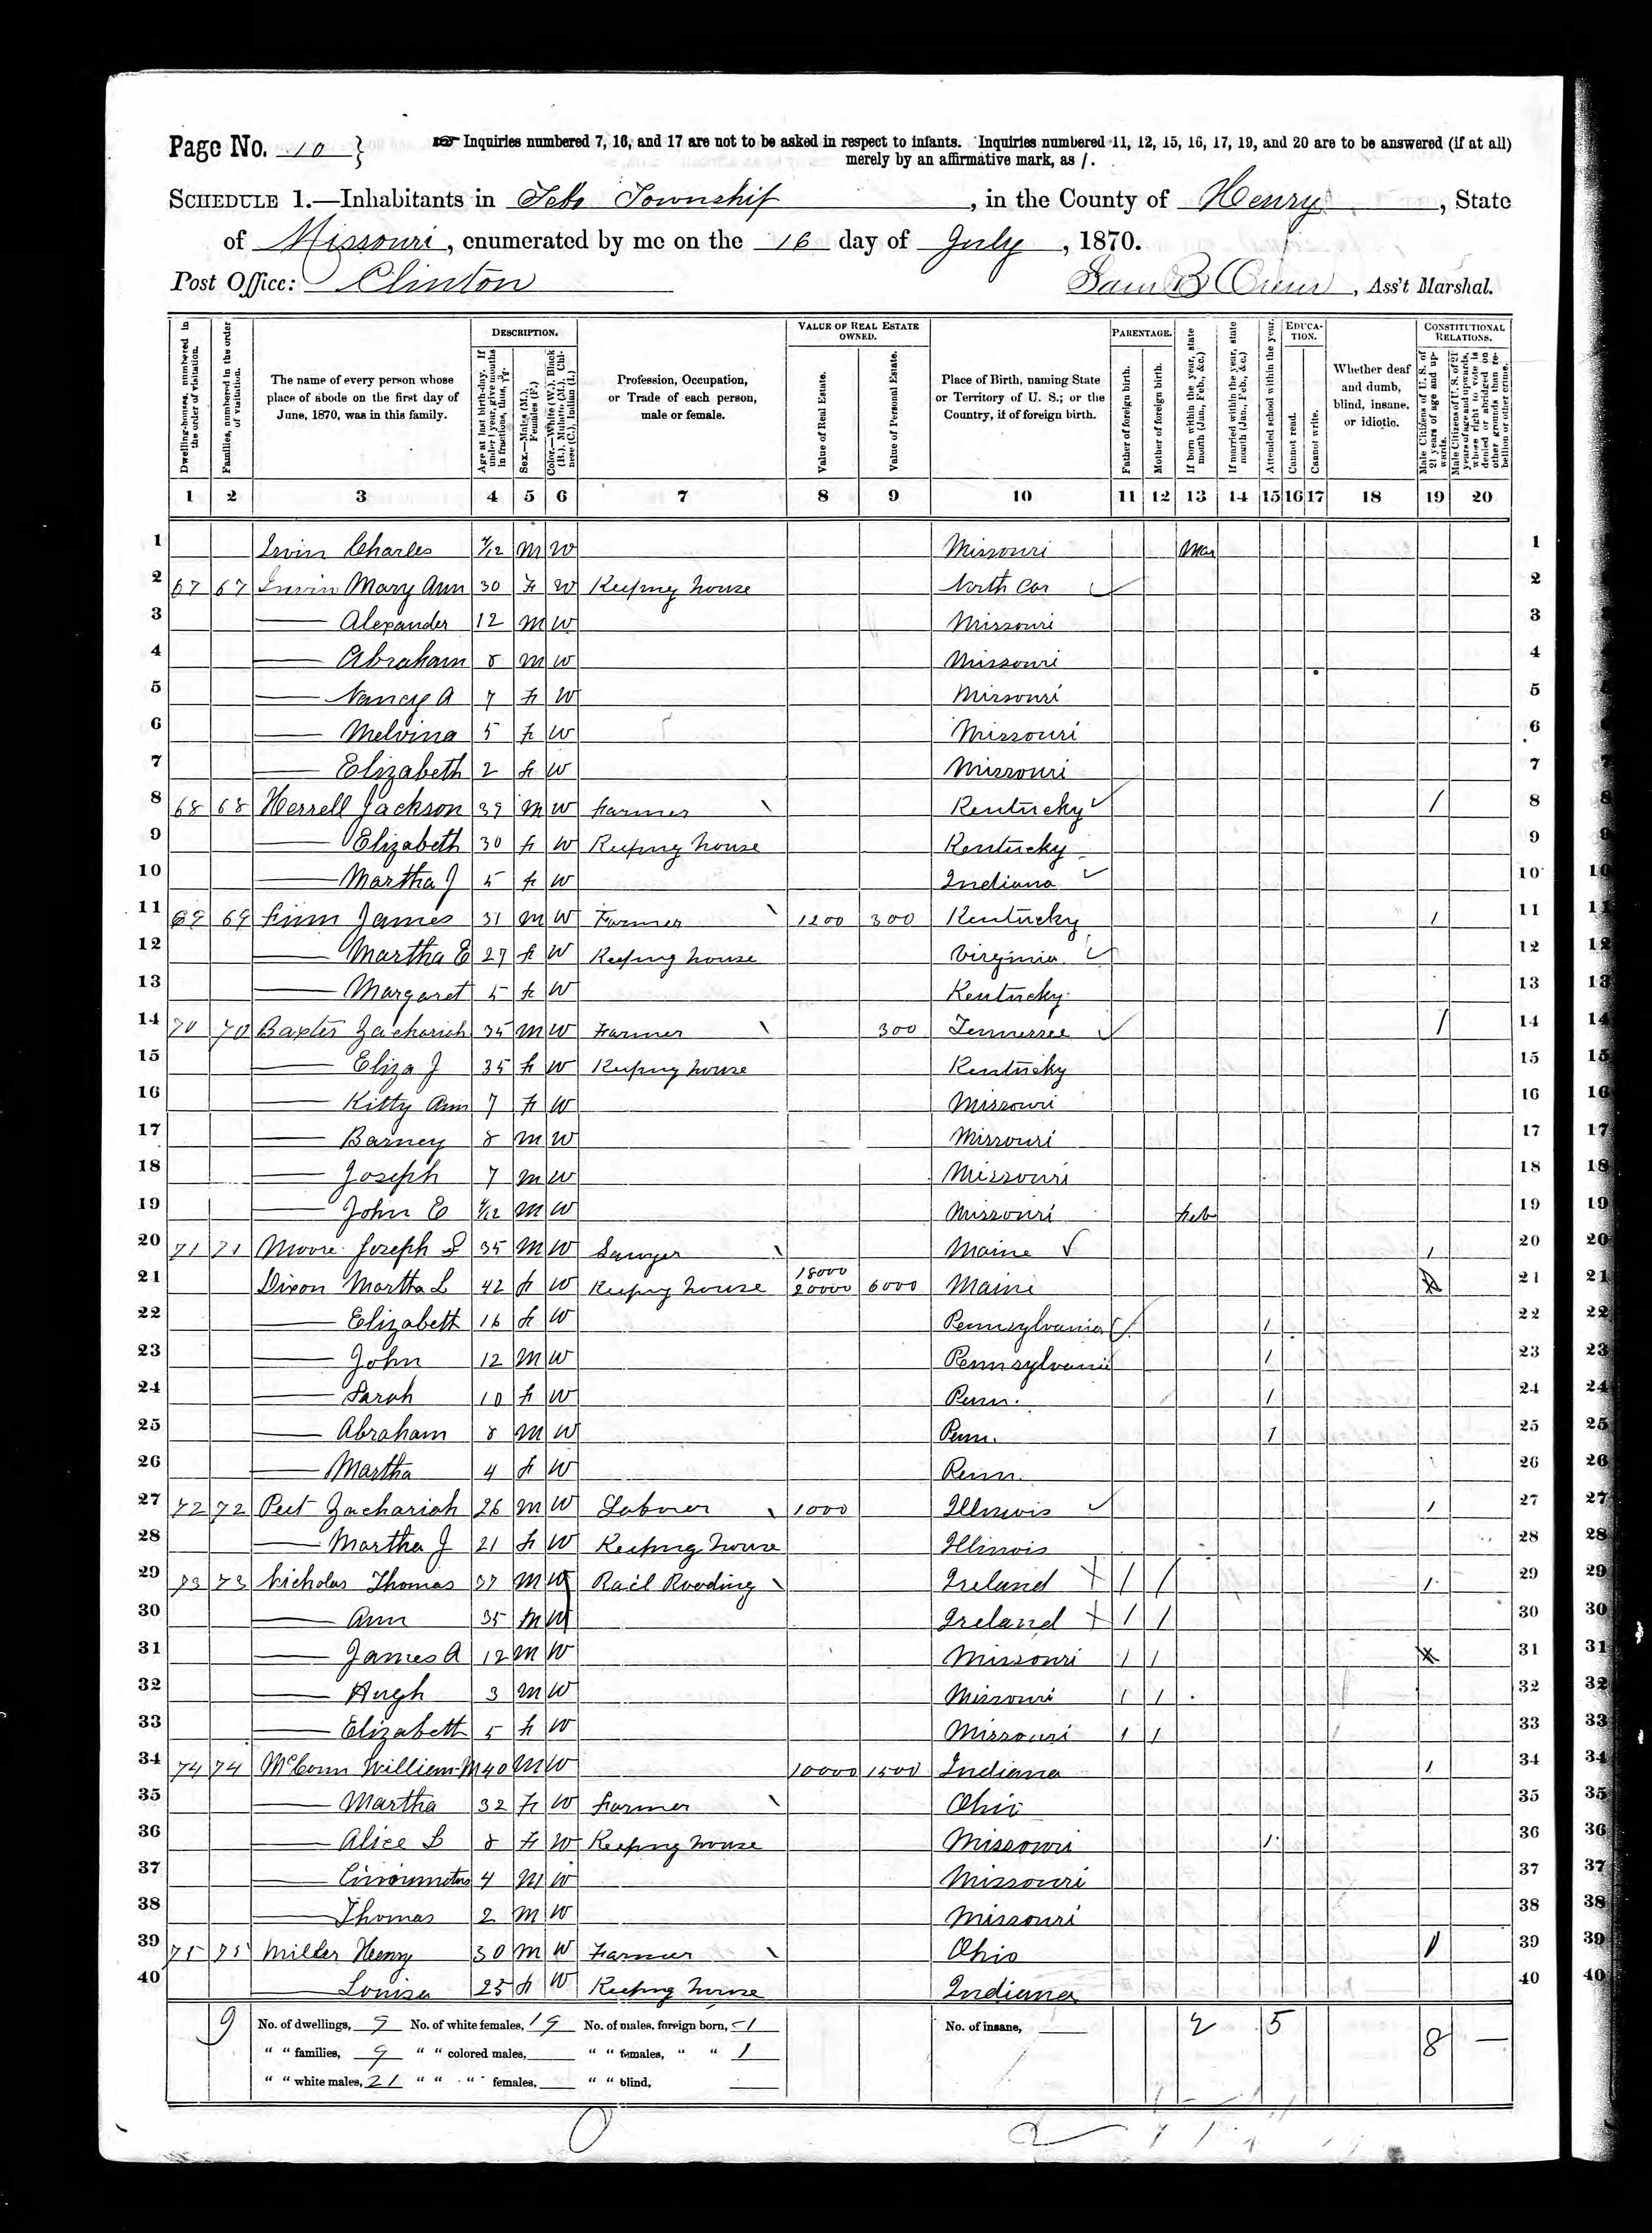 Page No. 10 }
☞ Inquiries numbered 7, 16, and 17 are not to be asked in respect to infants. Inquiries numbered 11, 12, 15, 16, 17, 19, and 20 are to be answered (if at all)
merely by an affirmative mark, as /.
SCHEDULE 1.—Inhabitants in Township, in the County of Henry, State
of Missouri, enumerated by me on the 16 day of July, 1870.
Post Office: Clinton
Sam B, Ass't Marshal.
Dwelling-houses, numbered in the order of visitation.
Families, numbered in the order of visitation.
The name of every person whose place of abode on the first day of June, 1870, was in this family.
DESCRIPTION.
Age at last birth-day. If under 1 year, give months in fractions, thus, 3/12.
Sex.—Males (M.), Females (F.)
Color.—White (W.), Black (B.), Mulatto (M.), Chinese (C.), Indian (I.)
Profession, Occupation, or Trade of each person, male or female.
VALUE OF REAL ESTATE OWNED.
Value of Real Estate.
Value of Personal Estate.
Place of Birth, naming State or Territory of U. S.; or the Country, if of foreign birth.
PARENTAGE.
Father of foreign birth.
Mother of foreign birth.
If born within the year, state month (Jan., Feb., &c.)
If married within the year, state month (Jan., Feb., &c.)
Attended school within the year.
EDUCATION.
Cannot read.
Cannot write.
Whether deaf and dumb, blind, insane, or idiotic.
CONSTITUTIONAL RELATIONS.
Male Citizens of U. S. of 21 years of age and upwards.
Male Citizens of U. S. of 21 years of age and upwards, whose right to vote is denied or abridged on other grounds than rebellion or other crime.
1 2 3 4 5 6 7 8 9 10 11 12 13 14 15 16 17 18 19 20
1 Irvin Charles 4/12 M W Missouri Mar 1
2 67 67 Irwin Mary Ann 30 F W Keeping house North Car 2
3 —— Alexander 12 M W Missouri 3
4 —— Abraham 8 M W Missouri 4
5 —— Nancy A 7 F W Missouri 5
6 —— Melvina 5 F W Missouri 6
7 —— Elizabeth 2 F W Missouri 7
8 68 68 Herrell Jackson 39 M W Farmer Kentucky / 8
9 —— Elizabeth 30 F W Keeping house Kentucky 9
10 —— Martha J 5 F W Indiana 10
11 69 69 Finn James 31 M W Farmer 1200 300 Kentucky / 11
12 —— Martha E 27 F W Keeping house Virginia 12
13 —— Margaret 5 F W Kentucky 13
14 70 70 Baxter Zachariah 35 M W Farmer 300 Tennessee / 14
15 —— Eliza J 35 F W Keeping house Kentucky 15
16 —— Kitty Ann 7 F W Missouri 16
17 —— Barney 8 M W Missouri 17
18 —— Joseph 7 M W Missouri 18
19 —— John E 4/12 M W Missouri Feb 19
20 71 71 Moore Joseph S 35 M W Sawyer Maine / 20
21 Dixon Martha L 42 F W Keeping house 18000 20000 6000 Maine 21
22 —— Elizabeth 16 F W Pennsylvania / 22
23 —— John 12 M W Pennsylvania / 23
24 —— Sarah 10 F W Penn. / 24
25 —— Abraham 8 M W Penn. / 25
26 —— Martha 4 F W Penn. 26
27 72 72 Peet Zachariah 26 M W Laborer 1000 Illinois / 27
28 —— Martha J 21 F W Keeping house Illinois 28
29 73 73 Nicholas Thomas 37 M W Rail Roading Ireland / / / 29
30 —— Ann 35 M W Ireland / / 30
31 —— James A 12 M W Missouri / / 31
32 —— Hugh 3 M W Missouri / / 32
33 —— Elizabeth 5 F W Missouri / / 33
34 74 74 McConn William M 40 M W 10000 1500 Indiana / 34
35 —— Martha 32 F W Farmer Ohio 35
36 —— Alice 8 F W Keeping house Missouri / 36
37 —— 4 M W Missouri 37
38 —— Thomas 2 M W Missouri 38
39 75 75 Miller Henry 30 M W Farmer Ohio / 39
40 —— Louisa 25 F W Keeping house Indiana 40
9 No. of dwellings, 9 No. of white females, 19 No. of males, foreign born, 1 No. of insane, 2 5 8 —
" " families, 9 " " colored males, " " females, " " 1
" " white males, 21 " " " females, " " blind,